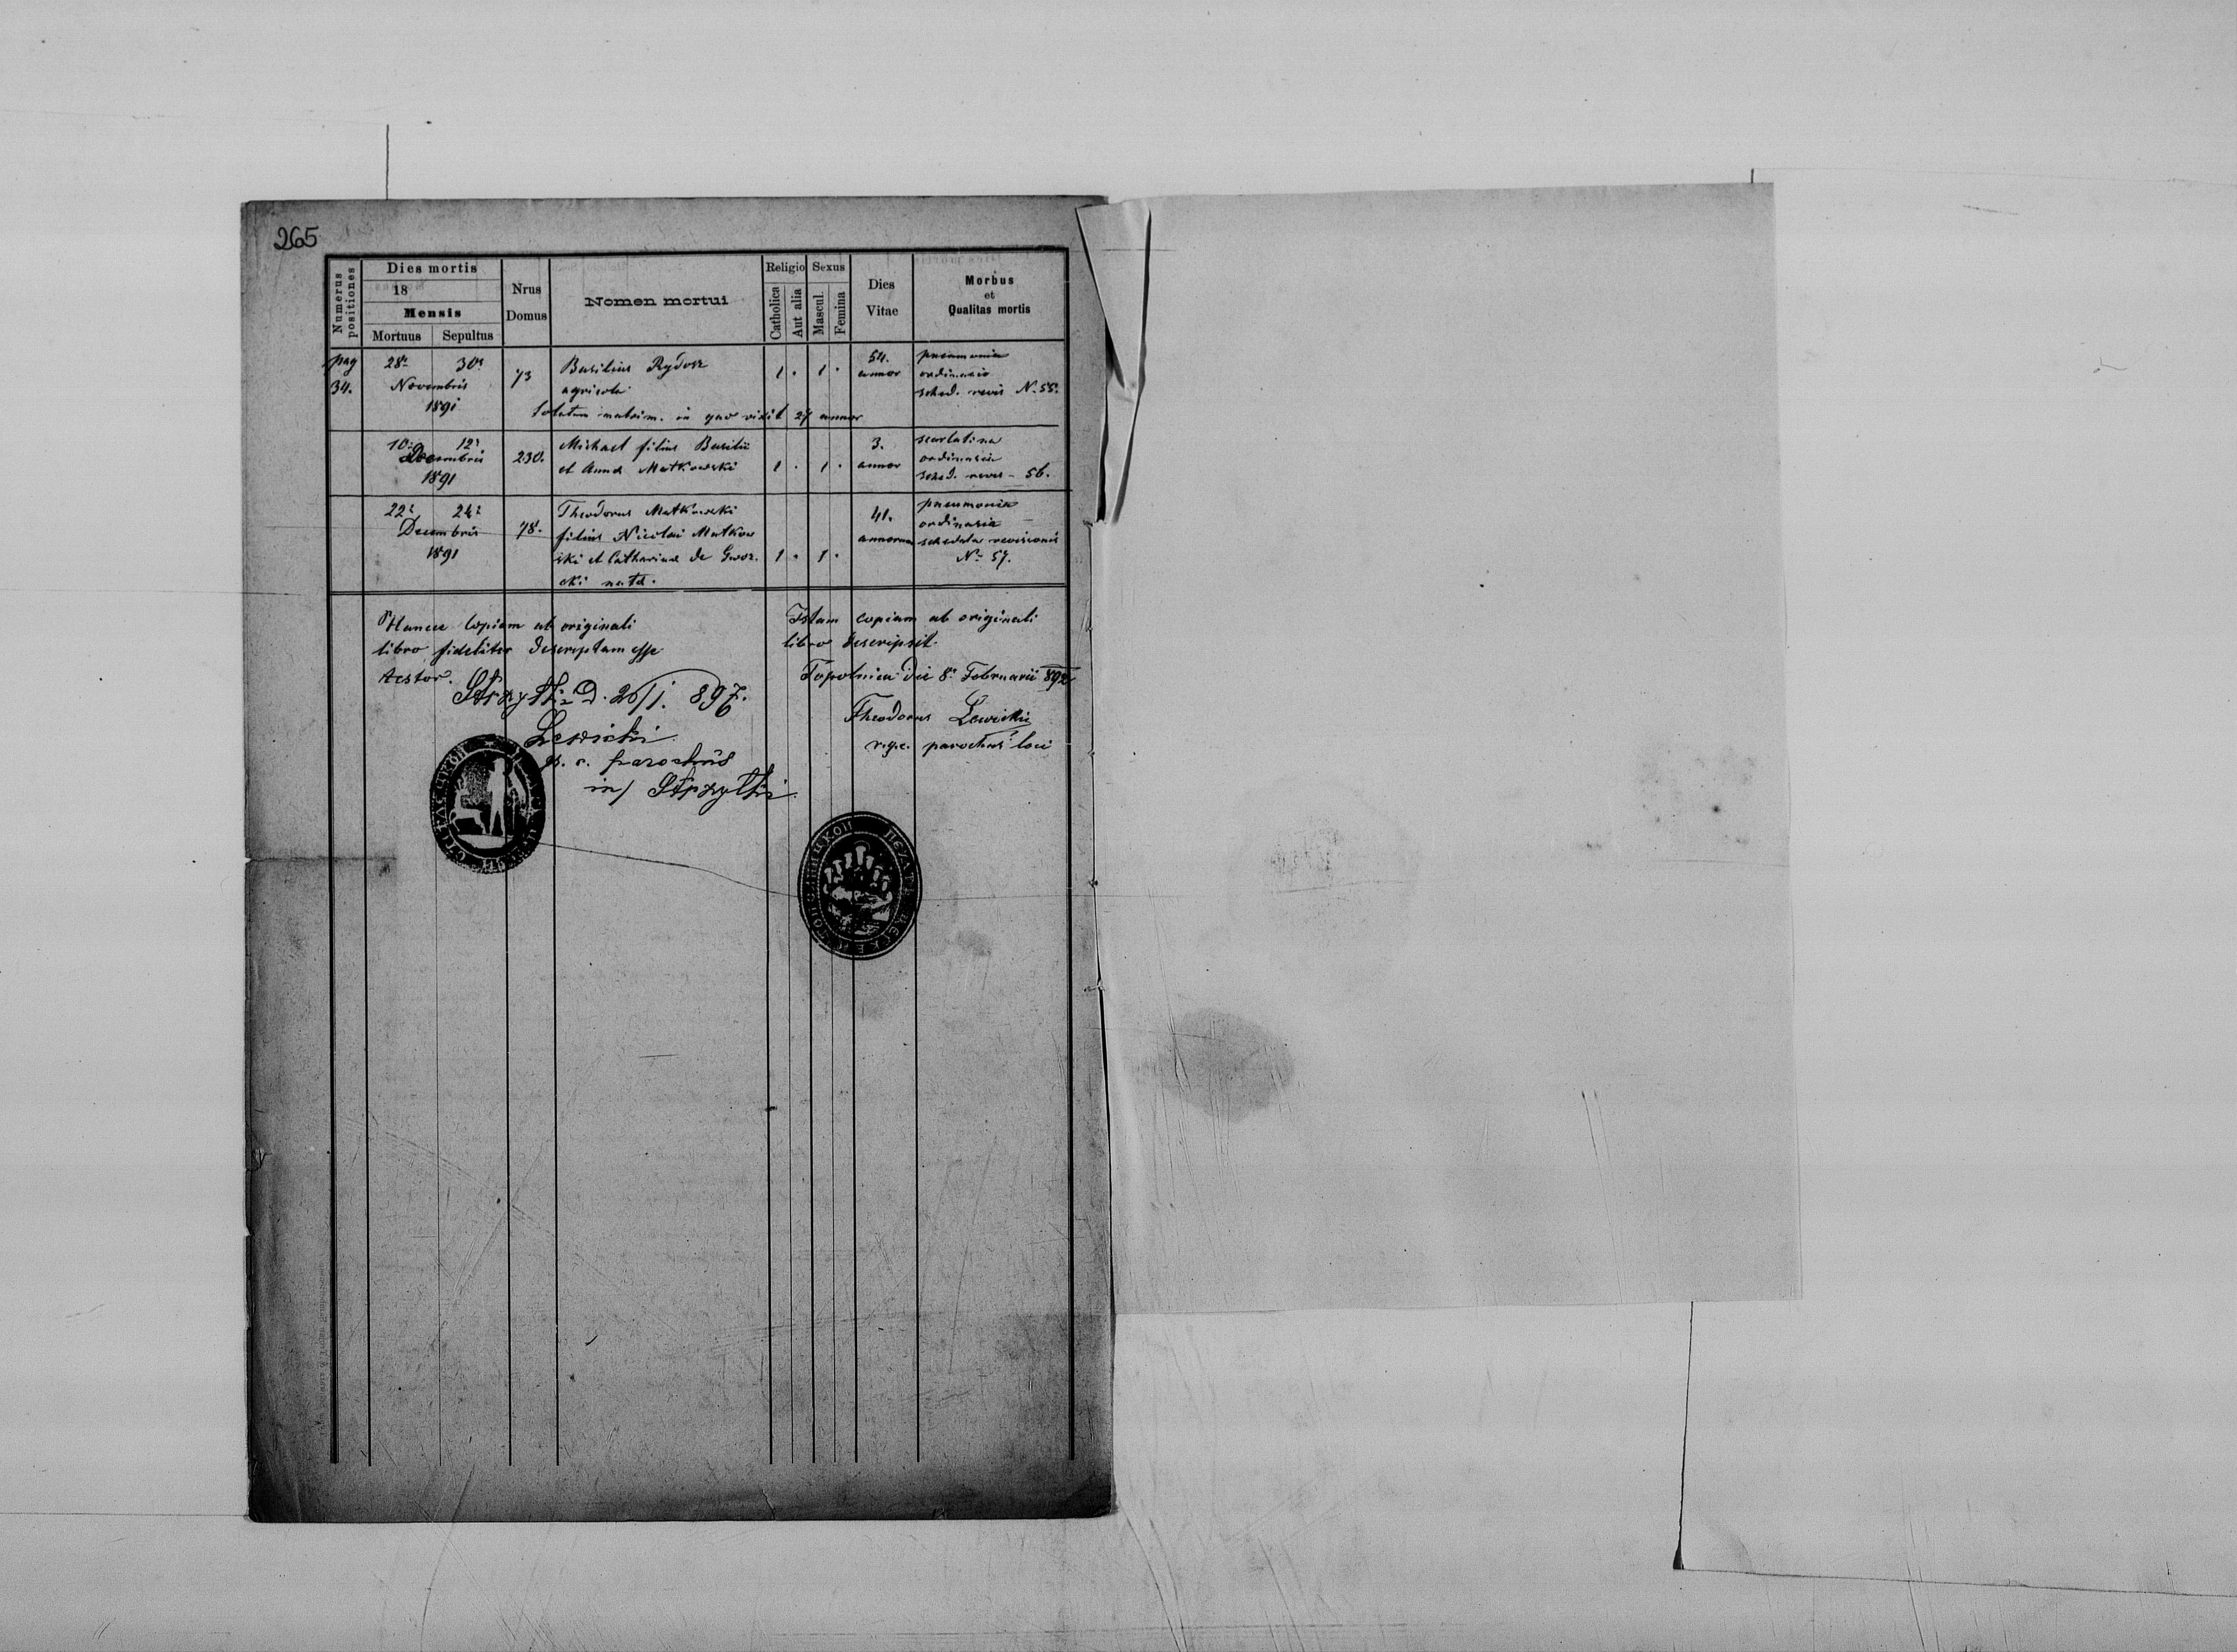 265
Numerus positiones
Dies mortis
18
Mensis
Mortuus Sepultus
Nrus Domus
Nomen mortui
Religio
Catholica
Aut alia
Sexus
Mascul.
Femina
Dies Vitae
Morbus
et
Qualitas mortis
pag 34.
28a 30a
Novembris
1891
73
Basilius Rydosz
agricola
Solutum matrim. in quo vixit 27 annor
1 . 1 .
54.
annor
pneumonia
ordinaria
sched. revis N. 55.
10a 12a
Decembris
1891
230.
Michael filius Basilii
et Anna Matkowski
1 . 1 .
3.
annor
scarlatina
ordinaria
sched. reves - 56.
22a 24a
Decembris
1891
78.
Theodorus Matkowski
filius Nicolai Matkow
ski et Catharina de Gwoz.
cki nata.
1 . 1 .
41.
annorum
pneumonia
ordinaria
schedula revisionis
No 57.
Hance Copiam ab originali
libro fideliter descriptam esse
testor.
Strzyłki D. 26/1. 897.
Lewicki
g. c. parochus
in Strzyłki
Istam copiam ab originali
libro descripsit
Topolnica die 8a Februarii 892
Theodorus Lewicki
r.g.c. parochus loci
ПЕЧАТЬ ЦЕРКВИ ТОПОЛНИЦКОИ